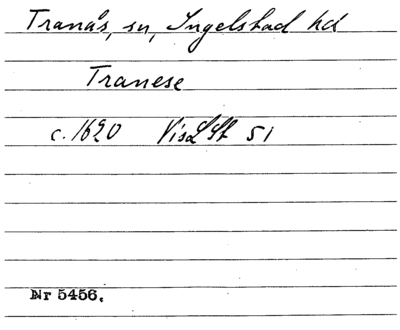 Tranås, sn, Ingelstad hd
Tranese
c. 1620 VisLSt 51
Nr 5456.